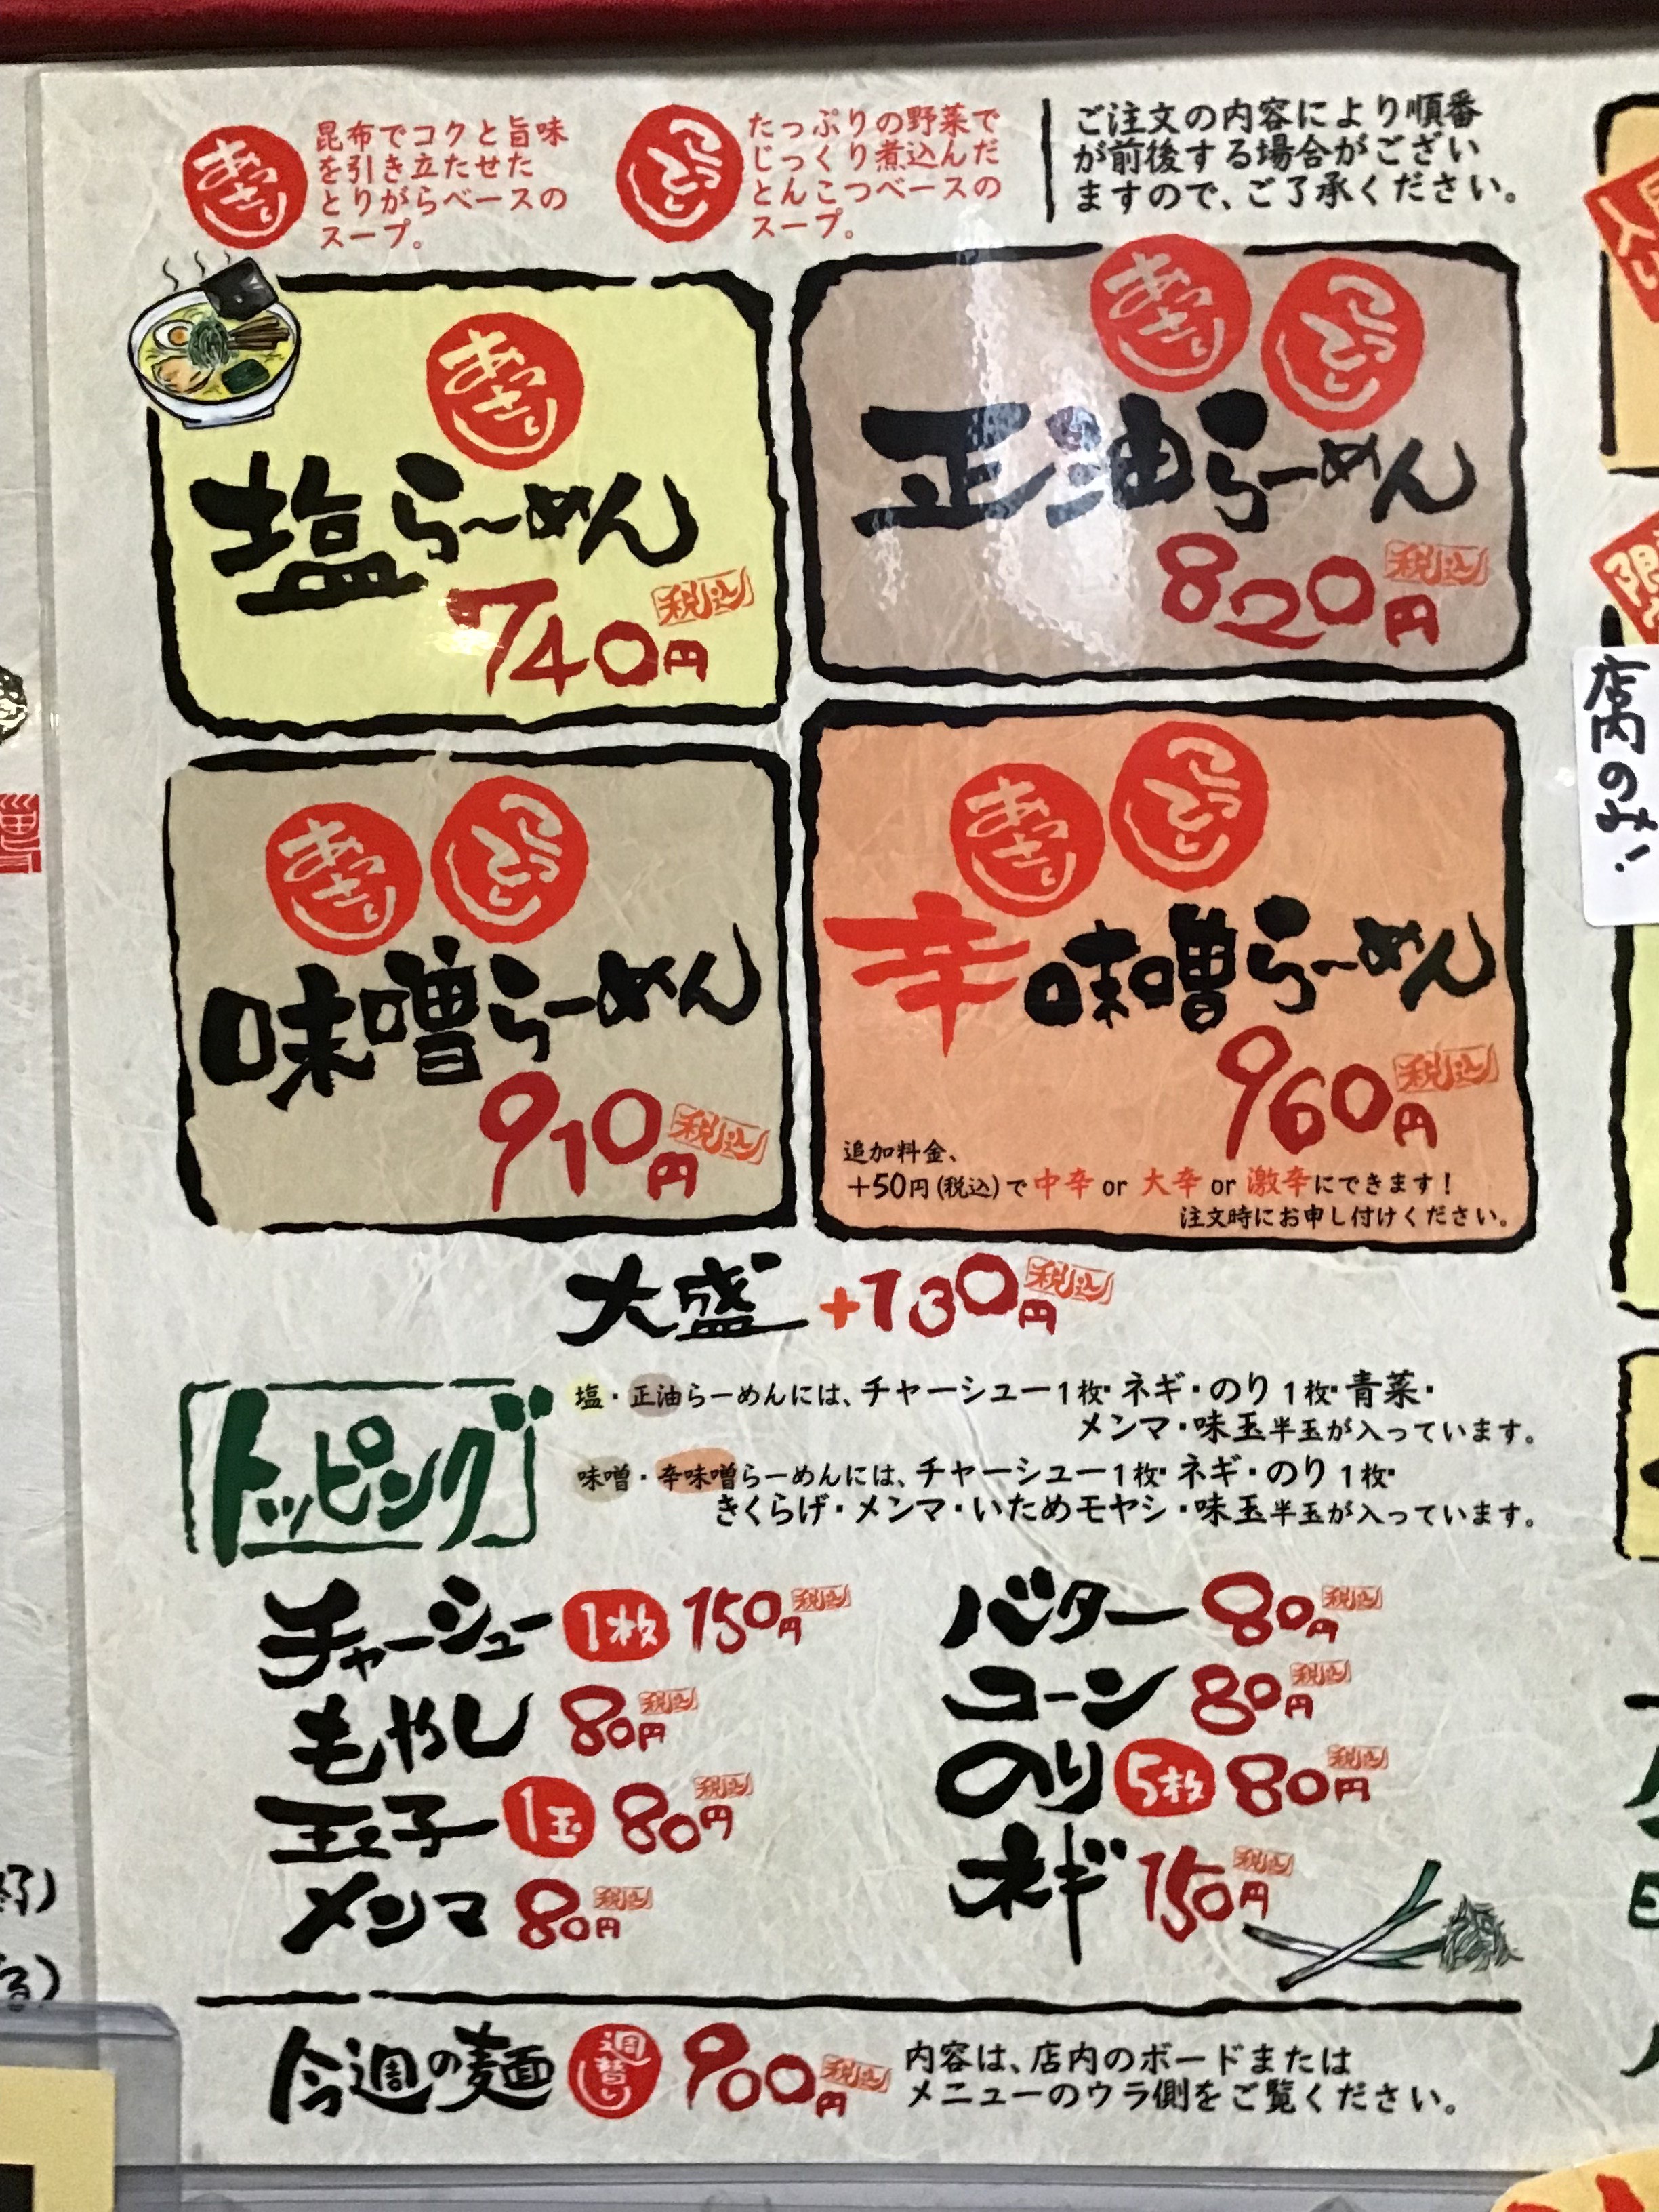 あっさり
昆布でコクと旨味
を引き立たせた
とりがらベースの
スープ。
こってり
たっぷりの野菜で
じっくり煮込んだ
とんこつベースの
スープ。
ご注文の内容により順番
が前後する場合がござい
ますので、ご了承ください。
あっさり
塩らーめん
740円 税込
あっさり こってり
正油らーめん
820円 税込
あっさり こってり
味噌らーめん
910円 税込
あっさり こってり
辛味噌らーめん
960円 税込
追加料金、
+50円(税込)で中辛 or 大辛 or 激辛にできます!
注文時にお申し付けください。
大盛 +130円 税込
トッピング
塩・正油らーめんには、チャーシュー1枚・ネギ・のり1枚・青菜・
メンマ・味玉半玉が入っています。
味噌・辛味噌らーめんには、チャーシュー1枚・ネギ・のり1枚・
きくらげ・メンマ・いためモヤシ・味玉半玉が入っています。
チャーシュー 1枚 150円 税込
もやし 80円 税込
玉子 1玉 80円 税込
メンマ 80円 税込
バター 80円 税込
コーン 80円 税込
のり 5枚 80円 税込
ネギ 150円 税込
今週の麺 週替り 900円 税込
内容は、店内のボードまたは
メニューのウラ側をご覧ください。
店内のみ!